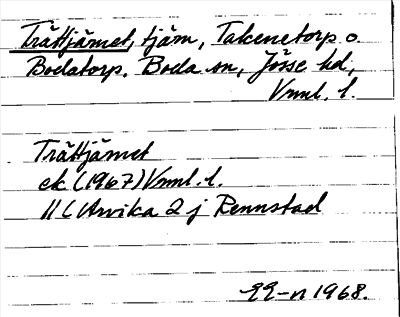 Trättjärnet, tjärn, Takenetorp o.
Bodatorp. Boda sn, Jösse hd,
Vrml. l.
Trättjärnet
ek. (1967) Vrml. l.
11 C Arvika 2 j Rennstad
EE-n 1968.